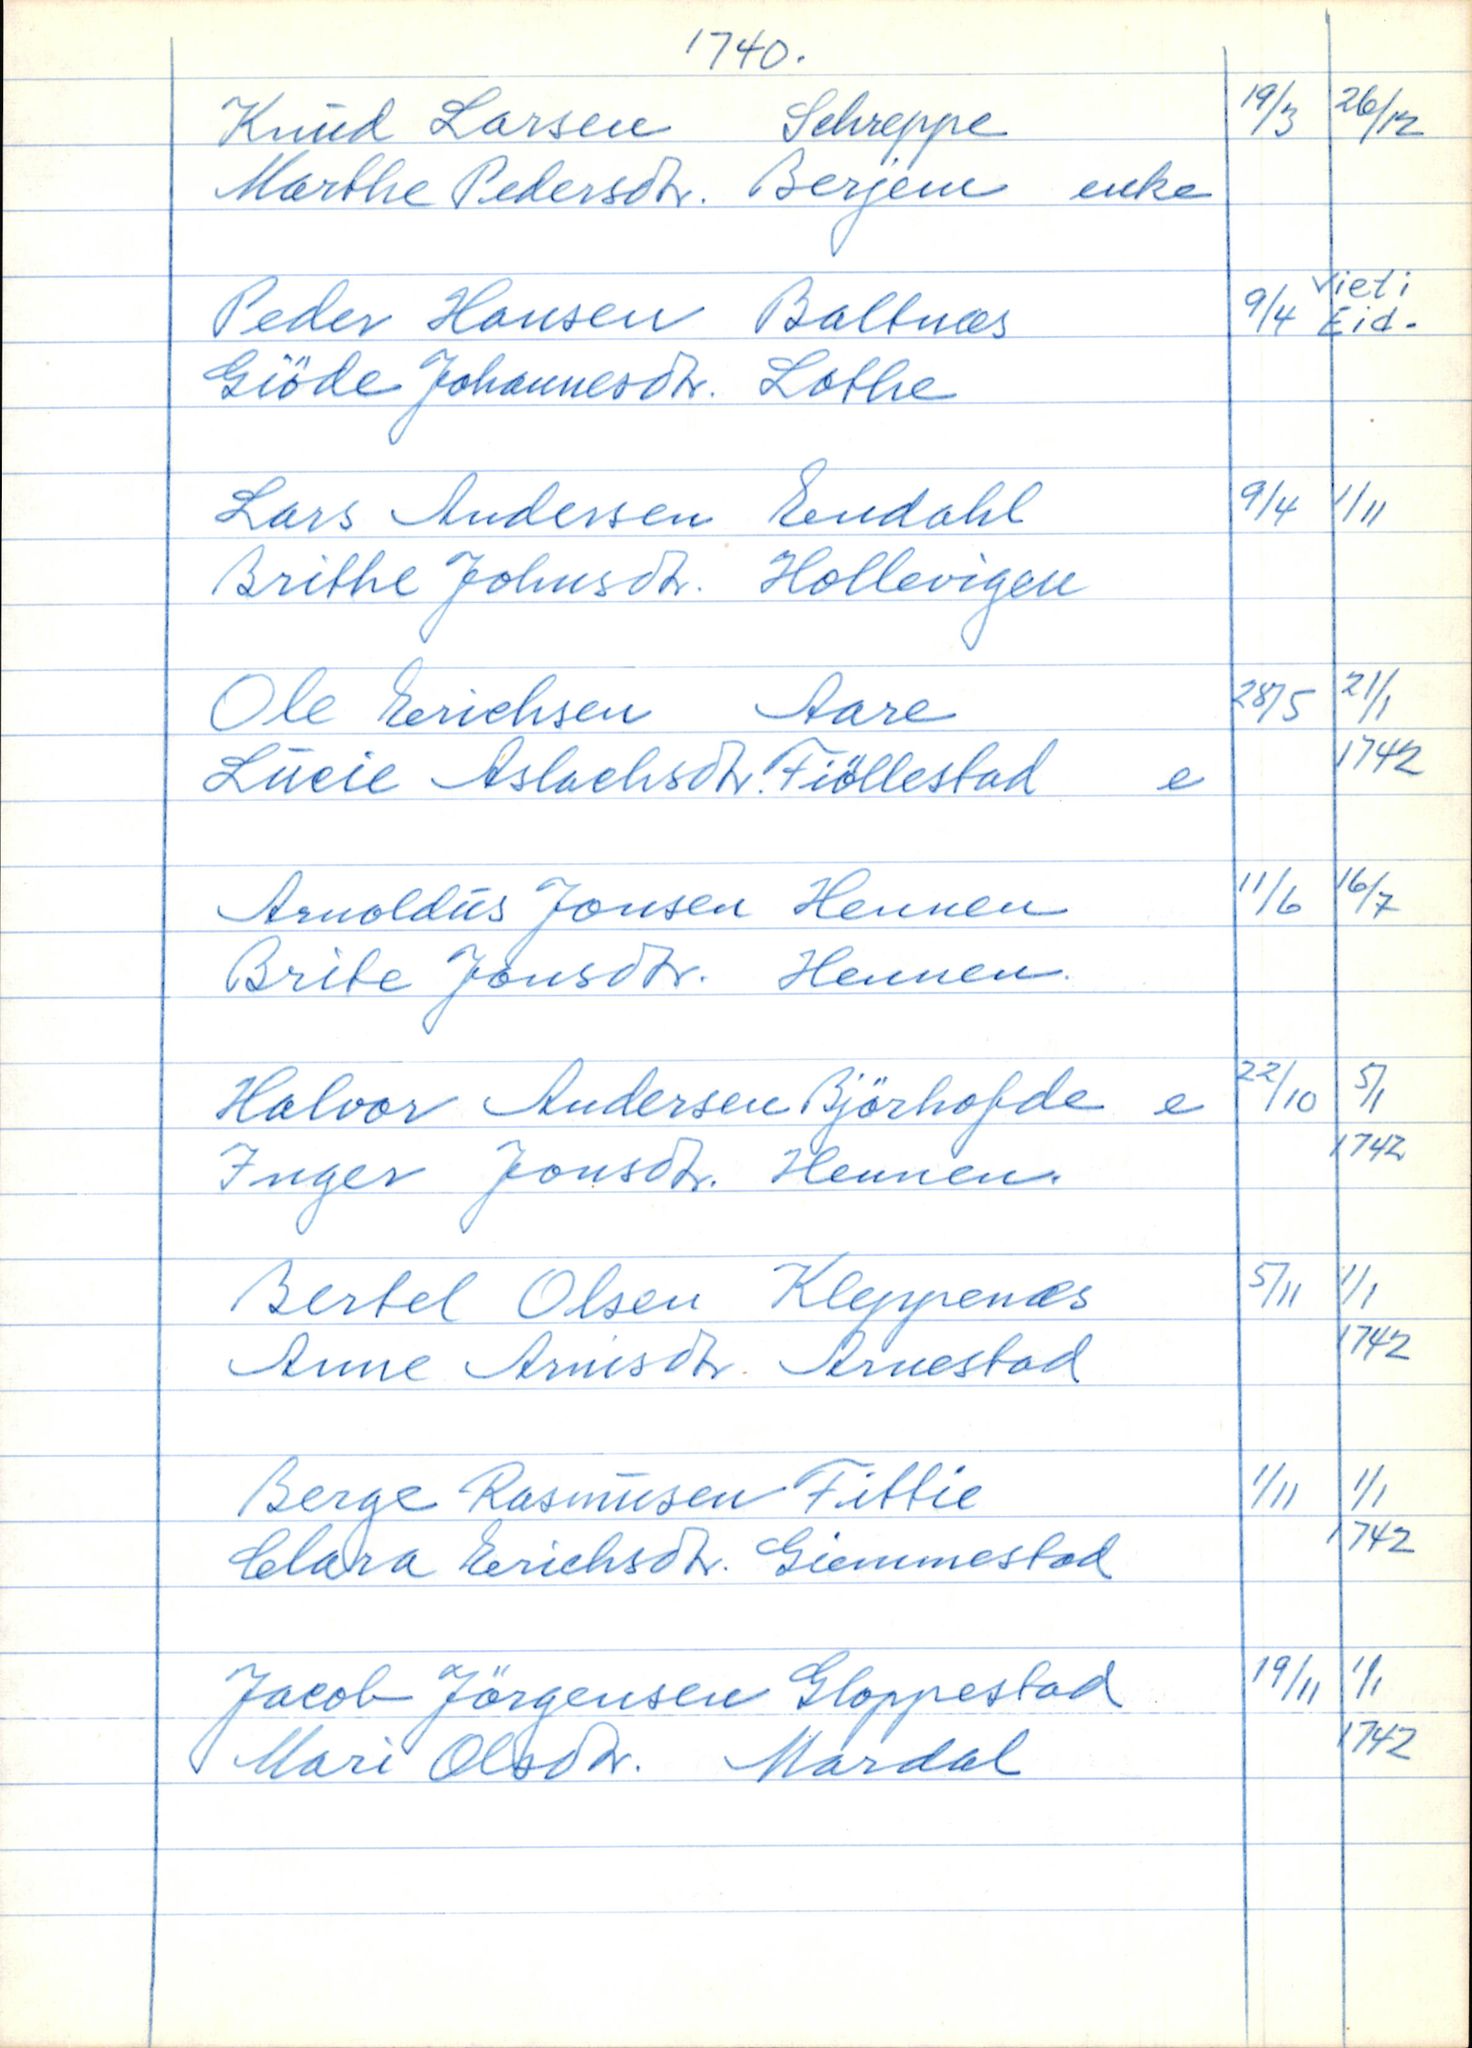 1740.
Knūd Larsen Schreppe 19/3 26/12
Marthe Pedersdtr. Berjem enke
Peder Hansen Baltnæs 9/4 Viet i
Giöde Johannesdtr. Lothe Eid.
Lars Andersen Eendahl 9/4 1/11
Brithe Johnsdtr. Hollevigen
Ole Eerichsen Aare 28/5 21/1
Lūcie Aslachsdtr. Fiöllestad e 1742
Arnoldūs Jonsen Hennen 11/6 16/7
Brite Jonsdtr. Hennen.
Halvor Andersen Björhofde e 22/10 5/1
Inger Jonsdtr. Hennen. 1742
Bertel Olsen Kleppenæs 5/11 1/1
Anne Arnisdtr. Arnestad 1742
Berge Rasmūsen Fittie 1/11 1/1
Clara Eerichsdtr. Giemmestad 1742
Jacob Jörgensen Gloppestad 19/11 1/1
Mari Olsdtr. Mardal 1742